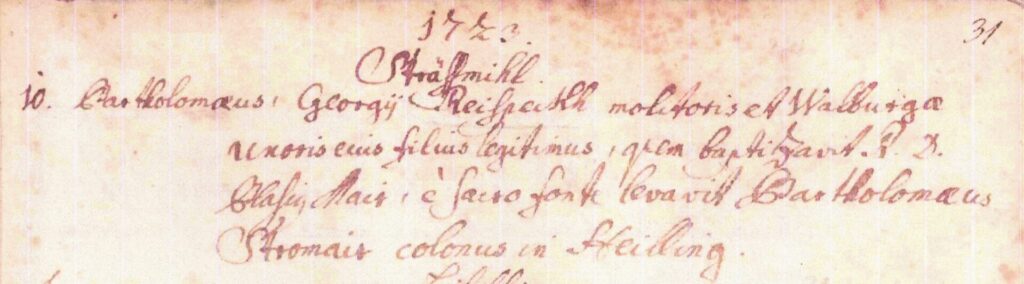 1723.
31
Sträßmihl.
10. Bartholomæus, Georgÿ Reispeckh molitoris et Walburgæ
uxoris eius filius legitimus, quem baptizavit R. D.
Blasiy Mair, è sacro fonte levavit Bartholomæus
Stromair colonus in Heilling.